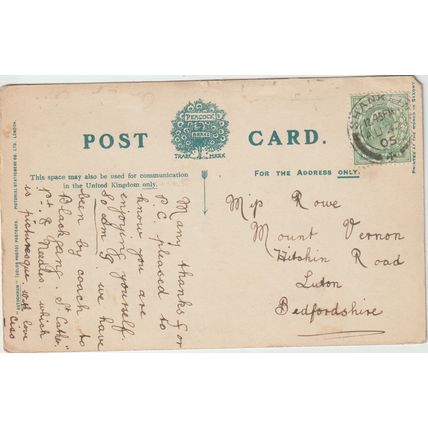 PEACOCK
BRAND
TRADE MARK
POST CARD.
This space may also be used for communication
in the United Kingdom only.
FOR THE ADDRESS ONLY.
SHANKLIN
05
Many thanks for
P.C. pleased to
know you are
enjoying yourself.
So am I. we have
been by coach to
Blackgang. St. Cathe'
Pt. & Needles. which
is picturesque with love
Ciss
Miſs Rowe
Mount Vernon
Hitchin Road
Luton
Bedfordshire